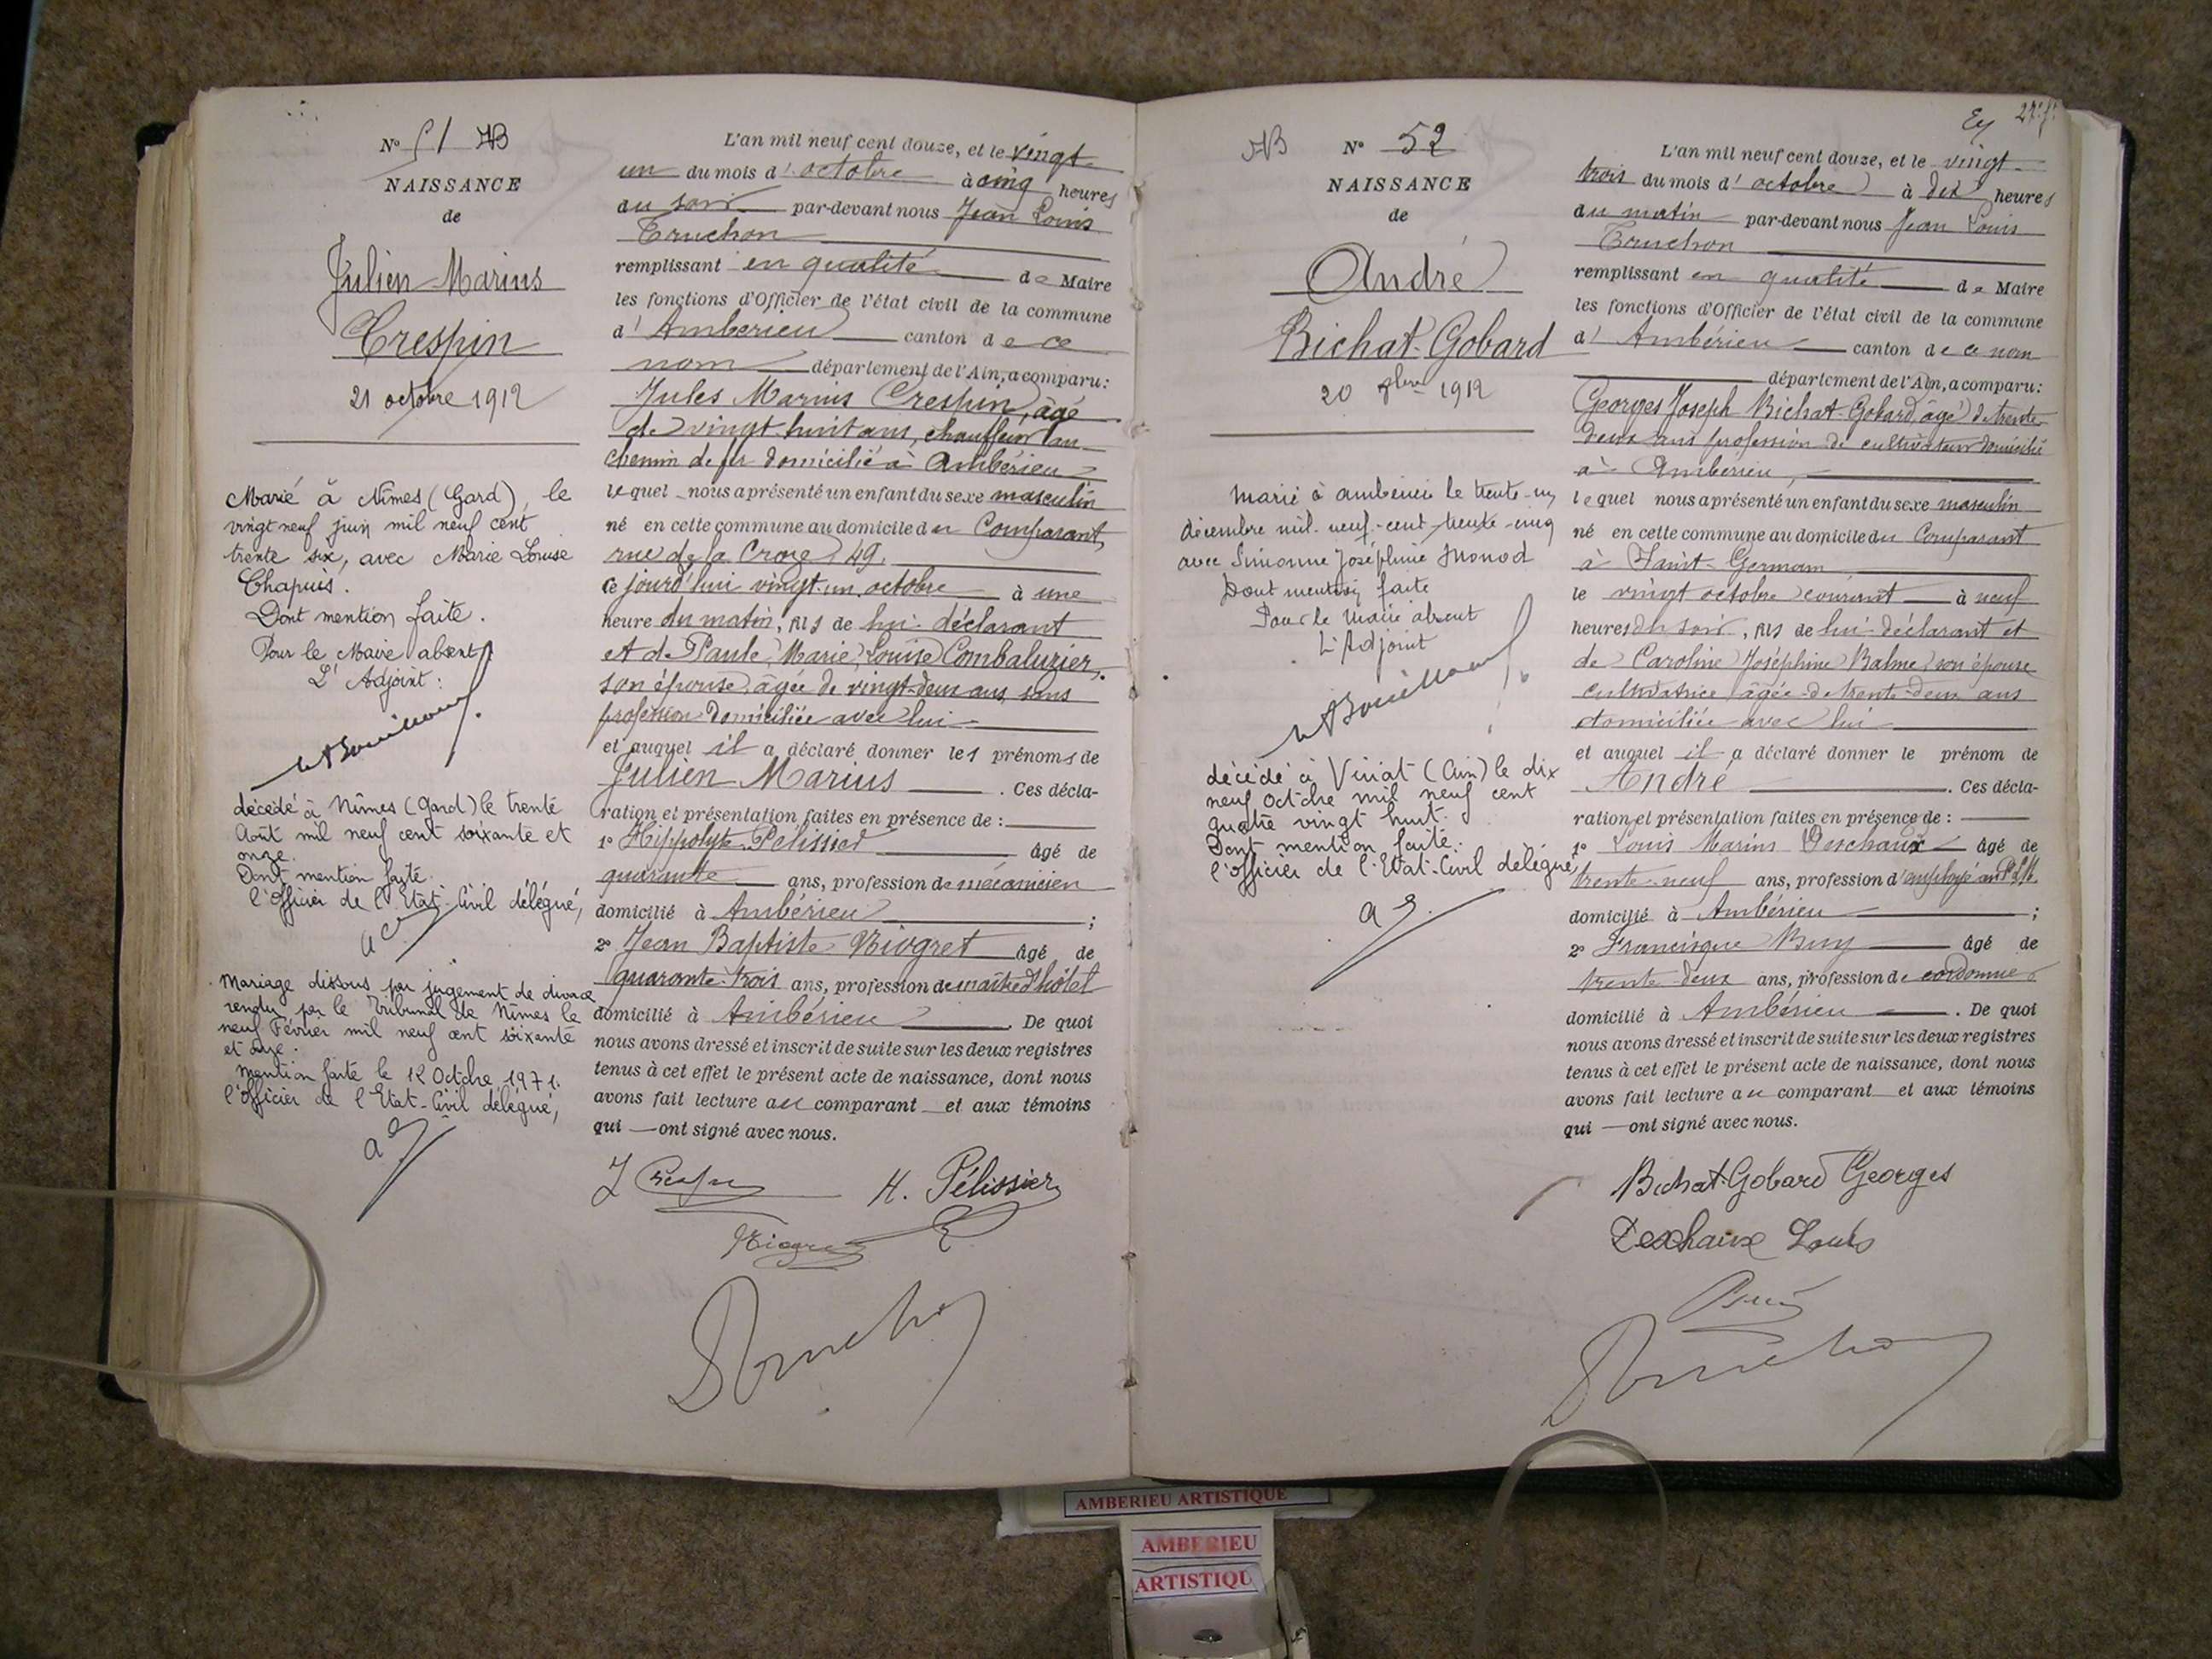 N° 51 AB
NAISSANCE
de
Julien Marius
Crespin
21 octobre 1912
Marié à Nîmes (Gard), le
vingt neuf juin mil neuf cent
trente six, avec Marie Louise
Chapuis.
Dont mention faite.
Pour le Maire absent
L'Adjoint :
décédé à Nîmes (Gard) le trente
Août mil neuf cent soixante et
onze.
Dont mention faite.
l'officier de l'Etat-Civil délégué,
Mariage dissous par jugement de divorce
rendu par le Tribunal de Nîmes le
neuf Février mil neuf cent soixante
et onze.
Mention faite le 12 Octobre 1971.
l'officier de l'Etat-Civil délégué,
L'an mil neuf cent douze, et le vingt-
un du mois d'octobre à cinq heures
du soir par-devant nous Jean Louis
Truchon
remplissant en qualité de Maire
les fonctions d'Officier de l'état civil de la commune
d'Ambérieu canton de ce
nom département de l'Ain, a comparu :
Jules Marius Crespin, âgé
de vingt-huit ans, chauffeur au
chemin de fer domicilié à Ambérieu
lequel nous a présenté un enfant du sexe masculin
né en cette commune au domicile du Comparant,
rue de la Croze, 49.
ce jourd'hui vingt-un octobre à une
heure du matin, fils de lui-déclarant
et de Paule, Marie, Louise Combaluzier,
son épouse, âgée de vingt-deux ans, sans
profession domiciliée avec lui
et auquel il a déclaré donner les prénoms de
Julien Marius . Ces décla-
ration et présentation faites en présence de :
1° Hippolyte Pélissier âgé de
quarante ans, profession de mécanicien
domicilié à Ambérieu ;
2° Jean BaptisteViogret âgé de
quarante-trois ans, profession de maître d'hôtel
domicilié à Ambérieu . De quoi
nous avons dressé et inscrit de suite sur les deux registres
tenus à cet effet le présent acte de naissance, dont nous
avons fait lecture au comparant et aux témoins
qui — ont signé avec nous.
J Crespin H. Pélissier
Truchon
AB N° 52
NAISSANCE
de
André
Bichat-Gobard
20 8bre 1912
Marié à Ambérieu le trente-un
décembre mil-neuf-cent-trente-cinq
avec Simonne Joséphine Monod
Dont mention faite
Pour le Maire absent
L'Adjoint
décédé à Viriat (Ain) le dix
neuf Octobre mil neuf cent
quatre vingt huit.
Dont mention faite.
l'officier de l'Etat-Civil délégué,
L'an mil neuf cent douze, et le vingt-
trois du mois d'octobre à dix heures
du matin par-devant nous Jean Louis
Truchon
remplissant en qualité de Maire
les fonctions d'Officier de l'état civil de la commune
d'Ambérieu canton de ce nom
département de l'Ain, a comparu :
Georges Joseph Bichat-Gobard, âgé de trente-
deux ans profession de cultivateur domicilié
à Ambérieu,
lequel nous a présenté un enfant du sexe masculin
né en cette commune au domicile du Comparant
à Saint-Germain
le vingt octobre courant à neuf
heures du soir, fils de lui-déclarant et
de Caroline Joséphine Balme son épouse
cultivatrice âgée de trente-deux ans
domiciliée avec lui
et auquel il a déclaré donner le prénom de
André . Ces décla-
ration et présentation faites en présence de :
1° Louis Marius Deschaux âgé de
trente-neuf ans, profession d'employé au P.L.M.
domicilié à Ambérieu ;
2° Francisque Buy âgé de
trente-deux ans, profession de cordonnier
domicilié à Ambérieu . De quoi
nous avons dressé et inscrit de suite sur les deux registres
tenus à cet effet le présent acte de naissance, dont nous
avons fait lecture au comparant et aux témoins
qui — ont signé avec nous.
Bichat-Gobard Georges
Deschaux Louis
Truchon
AMBERIEU ARTISTIQUE
AMBERIEU
ARTISTIQU